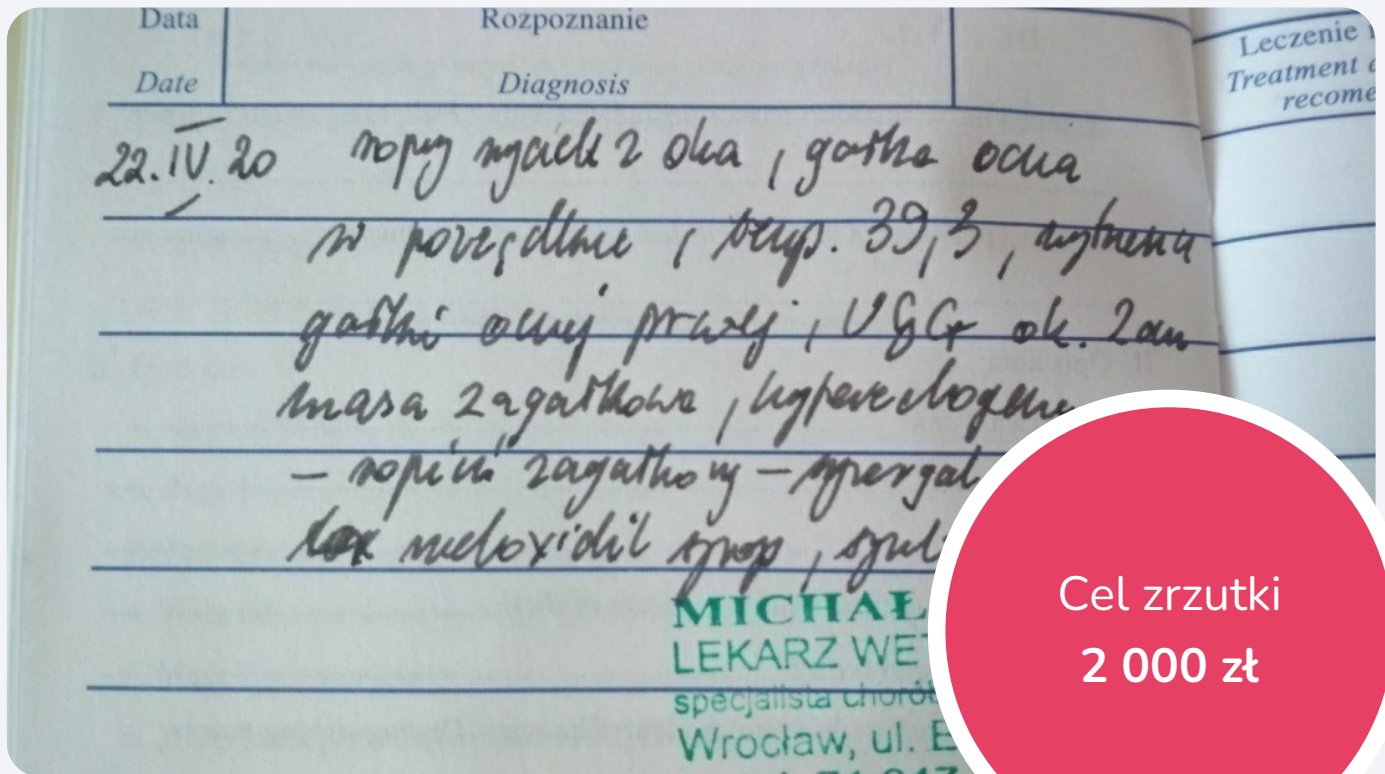 Data Rozpoznanie
Leczenie
Date Diagnosis
Treatment
recome
22.IV.20 ropny wyciek z oka, gałka oczna
w porządku, temp. 39,3, wytrzeszcz
gałki ocznej prawej, USG ok. 2cm
masa zagałkowa, hyperechogen
- ropień zagałkowy -
meloxidil syrop,
MICHAŁ
LEKARZ WET
specjalista chorób
Wrocław, ul. E
II. Opis kota
Cel zrzutki
2 000 zł